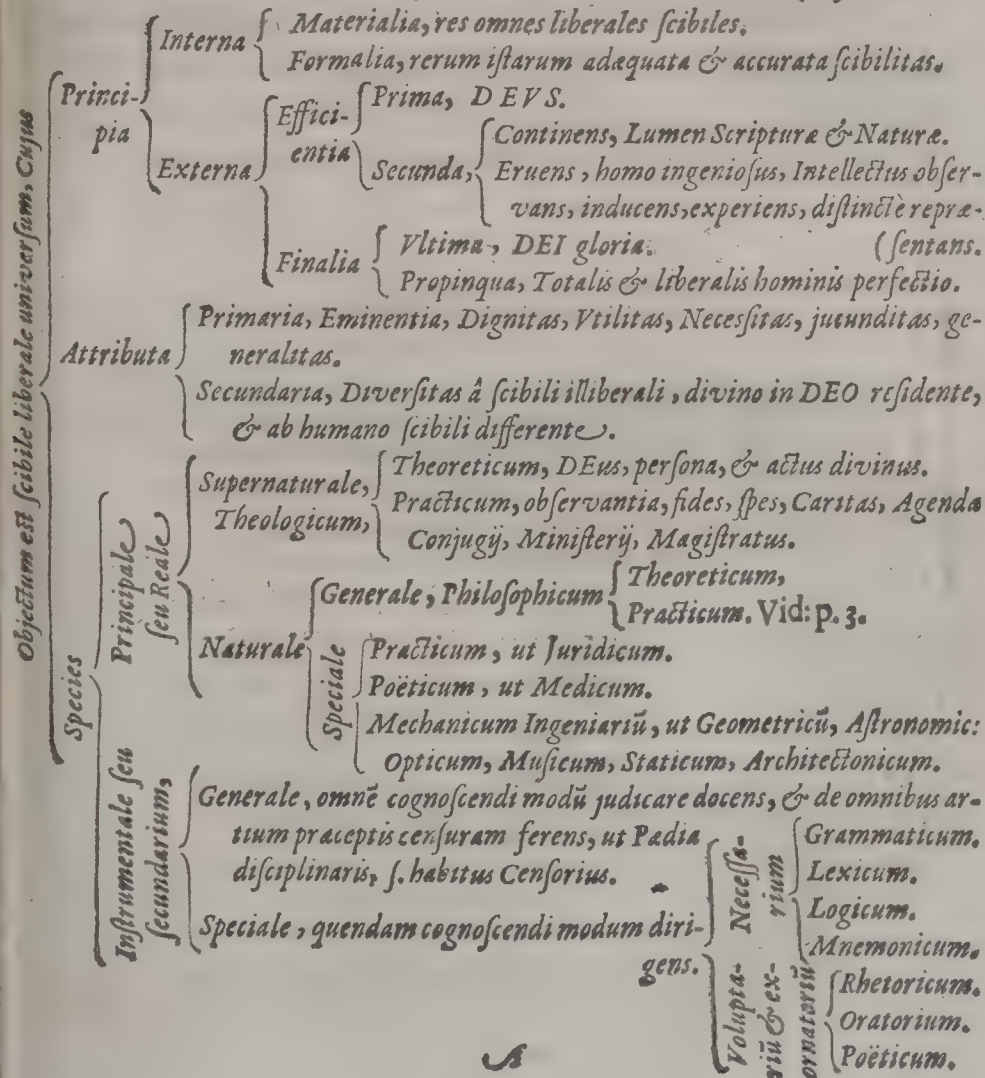 Objectum est scibile liberale universum, Cujus
Princi-
pia
Interna
Materialia, res omnes liberales scibiles.
Formalia, rerum istarum adæquata & accurata scibilitas.
Externa
Effici-
entia
Prima, DEVS.
Secunda,
Continens, Lumen Scripturæ & Naturæ.
Eruens, homo ingeniosus, Intellectus obser-
vans, inducens, experiens, distinctè repræ-
(sentans.
Finalia
Vltima, DEI gloria.
Propinqua, Totalis & liberalis hominis perfectio.
Attributa
Primaria, Eminentia, Dignitas, Vtilitas, Necessitas, jucunditas, ge-
neralitas.
Secundaria, Diversitas â scibili illiberali, divino in DEO residente,
& ab humano scibili differente.
Species
Principale
seu Reale
Supernaturale,
Theologicum,
Theoreticum, DEus, persona, & actus divinus.
Practicum, observantia, fides, spes, Caritas, Agenda
Conjugij, Ministerij, Magistratus.
Naturale
Generale, Philosophicum
Theoreticum,
Practicum. Vid: p. 3.
Speciale
Practicum, ut Juridicum.
Poëticum, ut Medicum.
Mechanicum Ingeniariū, ut Geometricū, Astronomic:
Opticum, Musicum, Staticum, Architectonicum.
Instrumentale seu
secundarium,
Generale, omnē cognoscendi modū judicare docens, & de omnibus ar-
tium præceptis censuram ferens, ut Pædia
disciplinaris, s. habitus Censorius.
Speciale, quendam cognoscendi modum diri-
gens.
Necessa-
rium
Grammaticum.
Lexicum.
Logicum.
Mnemonicum.
Volupta-
riū & ex-
ornatoriū
Rhetoricum.
Oratorium.
Poëticum.
A